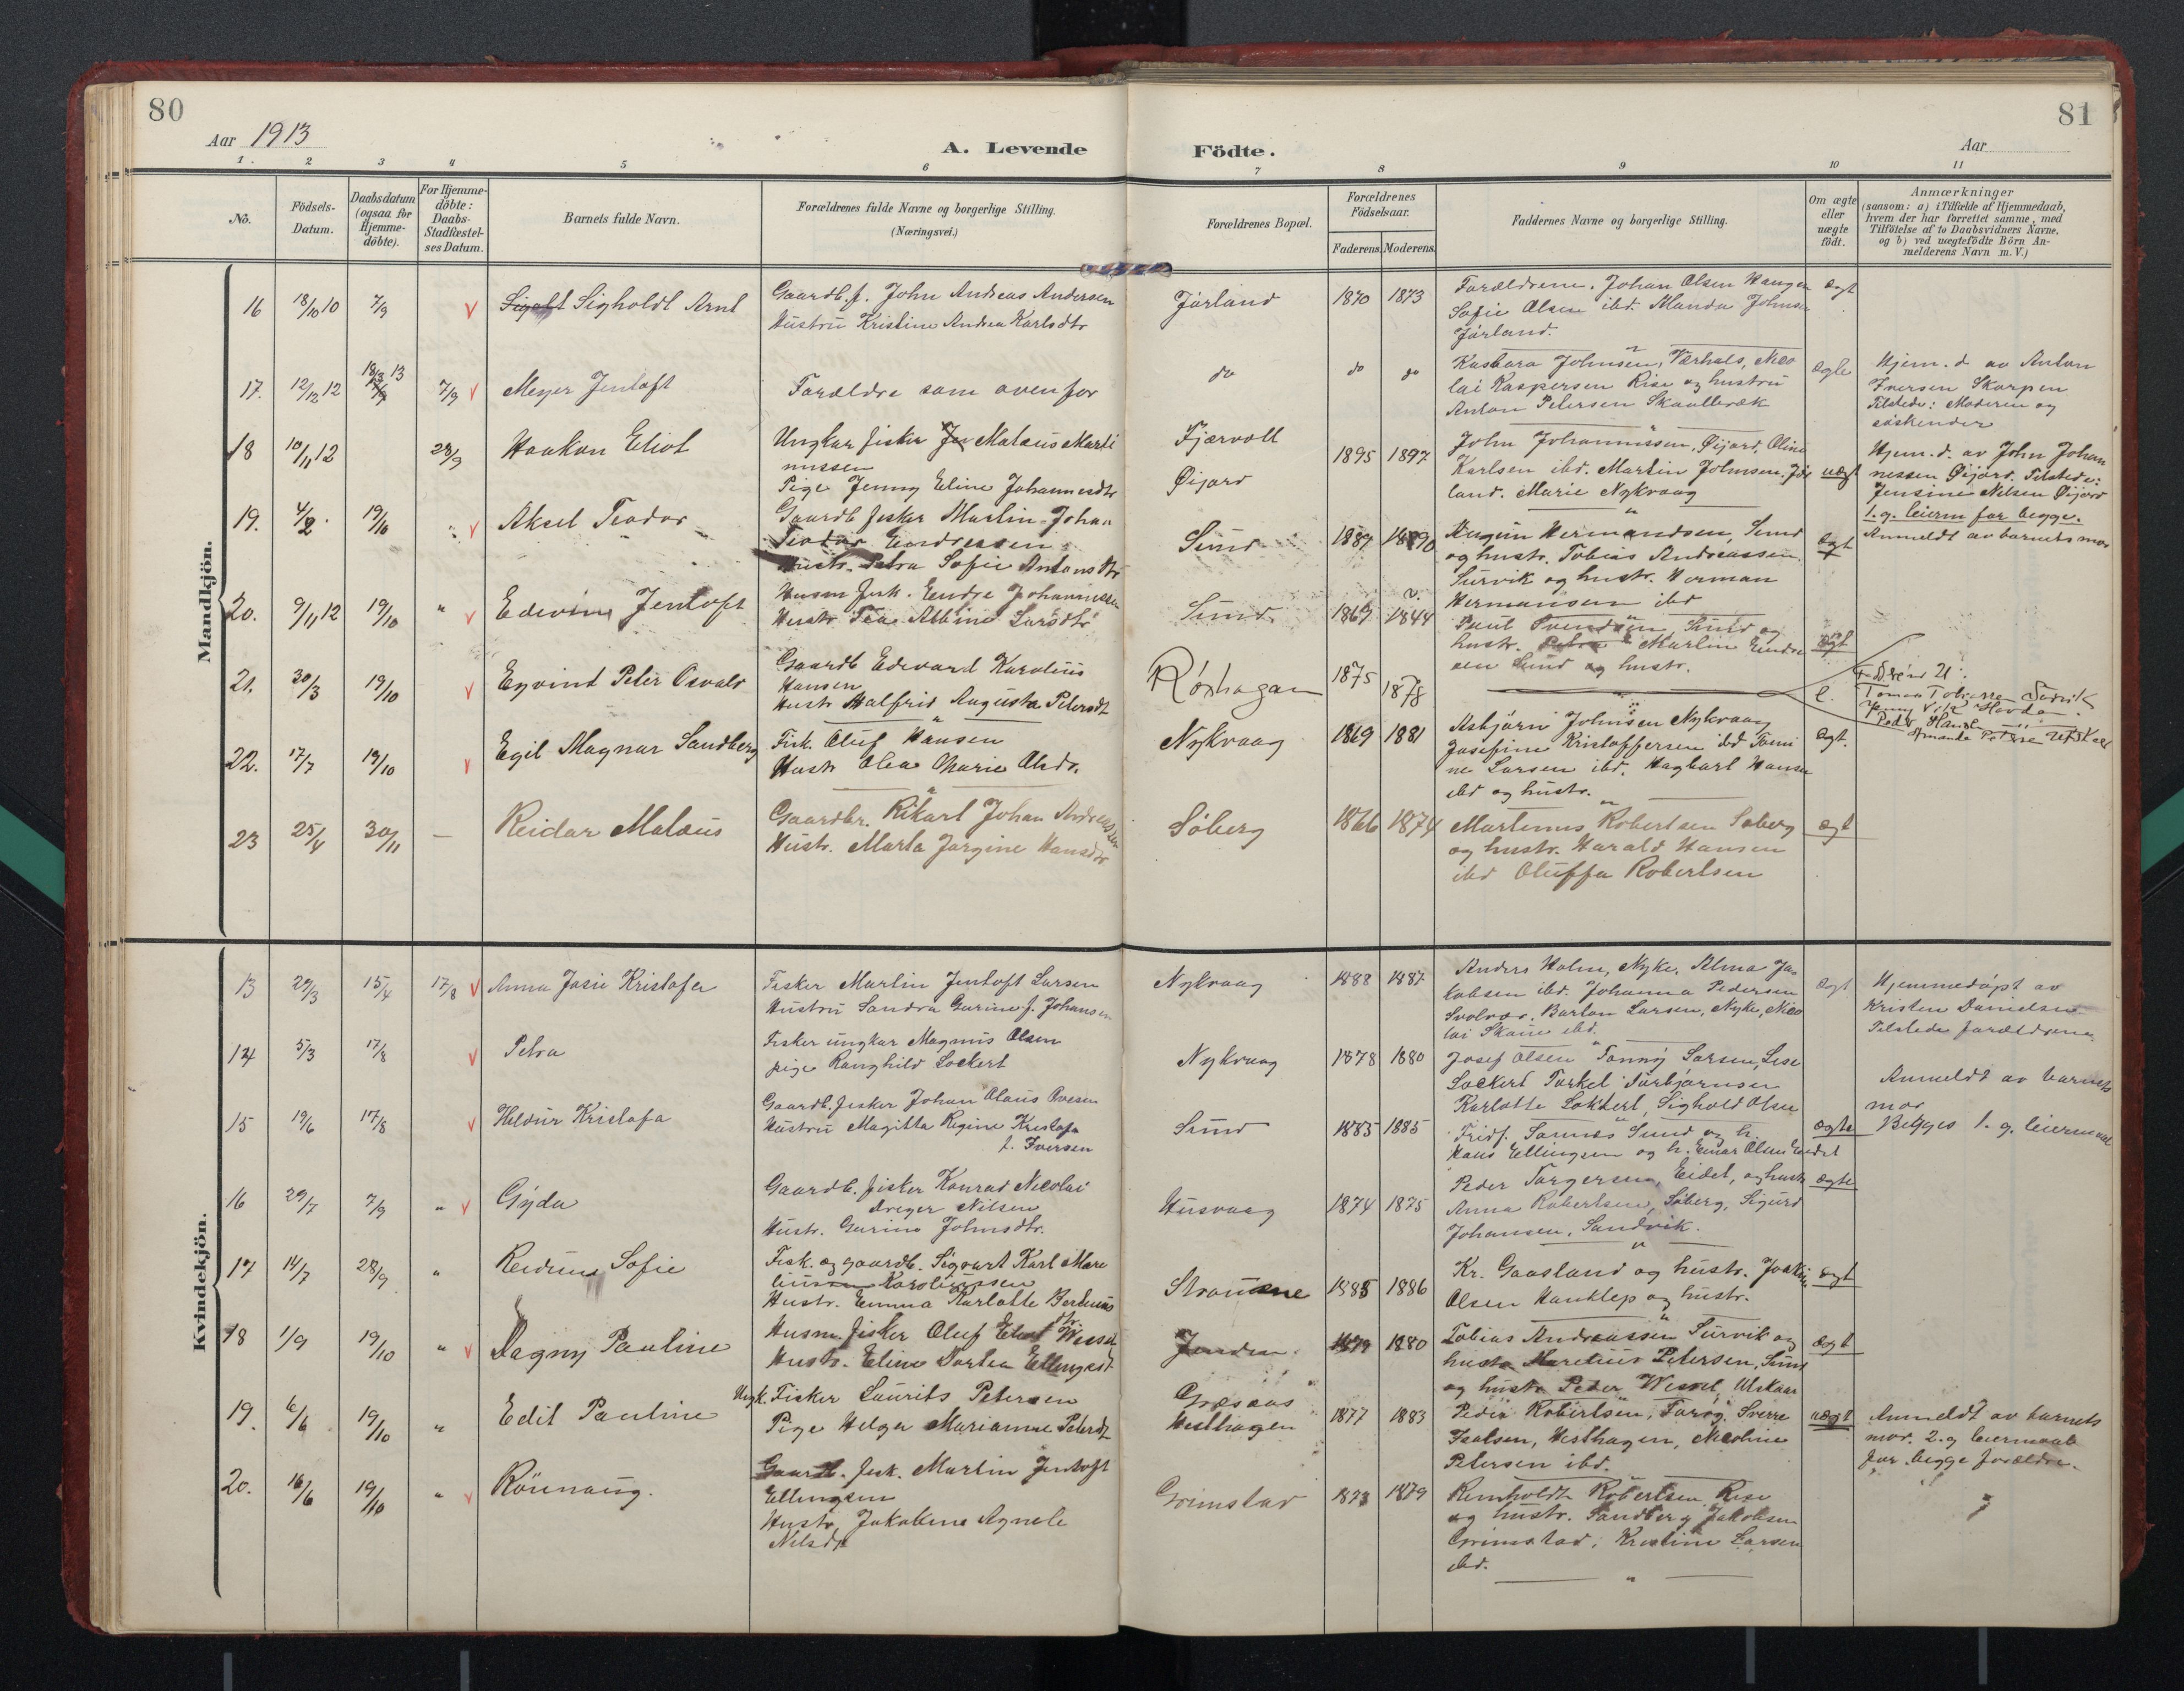 80
81
Aar 1913
A. Levende
Födte.
Aar
1. 2 3 4 5 6 7 8 9 10 11
No.
Födsels-Datum.
Daabsdatum (ogsaa for Hjemme-döbte).
For Hjemme-döbte: Daabs-Stadfæstel-ses Datum.
Barnets fulde Navn.
Forældrenes fulde Navne og borgerlige Stilling.
(Næringsvei.)
Forældrenes Bopæl.
Forældrenes Födselsaar.
Faderens. Moderens.
Faddernes Navne og borgerlige Stilling.
Om ægte eller uægte födt.
Anmærkninger
(saasom: a) i Tilfælde af Hjemmedaab,
hvem der har forrettet samme, med
Tilföielse af to Daabsvidners Navne,
og b) ved uægtefödte Börn An-
melderens Navn m. V.)
Mandkjön.
16 18/10 10 7/9 Sigholdt Arnt
Gaardb. f. John Andreas Andersen
Hustru Kristine Andrea Karlsdtr
Jörland 1870 1873
Forældrene. Johan Olsen Haugen
Sofie Olsen ibd. Manda Johnsen
Jörland.
ægt
17. 12/12 12 18/3 13 7/9 Meyer Jentoft
Forældre som ovenfor
do do do
Kasbara Johnsen, Værhals, Nico
lai Kaspersen Rise og hustru
Anton Petersen Skaallbræk
ægte
Hjem. d. av Anton
Iversen Skarpen
Tilstede: Moderen og
söskender
18 10/11 12 28/9 Haakon Eliot
Ungkar fisker Matæus Marti
nussen
Pige Jenny Eline Johannesdtr
Fjærvoll
Øijord
1895 1897
John Johannissen, Øijord, Olina
Karlsen ibd. Martin Johnsen, Jör
land. Marie Nykvaag
uægt
Hjem. d. av John Johan
nessen Øijord. Tilstede:
Jensine Nilsen Øijord
1. g. leierm for begge.
Anmeldt av barnets mor
19. 4/2 19/10 Aksel Teodor
Gaardb fisker Martin Johan
Teodor Endressen
Hustr. Petra Sofie Antonsdtr
Sund 1889 1890
Hermandsen, Sund
og hustr. Tobias Andreassen
Survik og hustr. Herman
Hermansen ibd
ægt
20. 9/11 12 19/10 " Edevin Jentoft
Husm fisk. Endre Johannessen
Hustr. Tea Albine Larsdtr
Sund 1867 1844
Paul Svendsen Sund og
hustr. Martin Endre
sen Sund og hustr.
ægt
21. 30/3 19/10 Eyvind Peter Osvald
Gaardb Edevard Karolius
Hansen
Hustr Halfrid Augusta Petersdt
Röshagen 1875 1878
e.
Faddrene 21:
Tomas Tobiassen Survik
Peder Hansen
22. 17/7 19/10 Egil Magnar Sandberg
Fisk. Oluf Hansen
Hustr Olea Marie Olsdr.
Nykvaag 1869 1881
Asbjörn Johnsen Nykvaag
Josefine Kristoffersen ibd
ne Larsen ibd. Hagbart Hansen
ibd og hustr.
ægt.
23 25/4 30/11 — Reidar Matæus
Gaardbr. Rikart Johan Andreassen
Hustr. Marta Jorgine Hansdtr
Söberg 1866 1874
Martinus Robertsen Söberg
og hustr. Harald Hansen
ibd Oluffa Robertsen
ægt
Kvindekjön.
13 29/3 15/4 17/8 Anna Josie Kristofa
Fisker Martin Jentoft Larsen
Hustru Sandra Gurine f. Johansen
Nykvaag 1888 1887
Anders Holm, Nyke, Alma Ja-
kobsen ibd. Johanna Pedersen
Svolvær. Barton Larsen, Nyke, Nico
lai Skaue ibd.
ægt
Hjemmedöpt av
Kristen Danielsen
Tilstede forældrene
14 5/3 17/8 Petra
Fisker ungkar Magnus Olsen
pige Ranghild Lockert
Nykvaag 1878 1880
Josef Olsen Fanny Larsen, Lise
Lockert Torkel Torbjörnsen
Karlotte Lokkert, Sighold Olsen
Anmeldt av barnets
mor
Begges 1. g. leiermaal
15 19/6 17/8 Heldur Kristofa
Gaardb. fisker Johan Olaus Ovesen
Hustru Magitta Regine Kristofa
f. Iversen
Sund 1883 1885
Fridf. Sannes Sund og h.
Hans Ellingsen og h. Einar Olsen Eidet
ægte
16 29/7 7/9 " Gyda
Gaardb. fisker Konrad Nicolai
Dreyer Nilsen
Hustr. Gurine Johnsdtr.
Husvaag 1874 1875
Peder Torgersen, Eidet, og hustr
Anna Robertsen, Söberg, Sigurd
Johansen, Sandvik.
ægte
17 14/7 28/9 " Reidun Sofie
Fisk. og gaardb. Sigvart Karl Mare
lius Karoliussen
Hustr. Emma Karlotte Bertheus
dtr.
Straumene 1885 1886
Kr. Gaasland og hustr. Joakim
Olsen Hanklep og hustr.
ægt
18 1/9 19/10 " Dagny Pauline
Husm. fisker Oluf Wessel
Hustr. Eline Dortea Ellingsdt
1879 1880
Tobias Andreassen Survik og
hustr Maretius Petersen, Sund
og hustr Peder Wessel, Ulskaar
ægt
19. 6/6 19/10 " Edit Pauline
Ungk. Fisker Laurits Petersen
Pige Helga Marianne Petersdt
Græsaas
Vesthagen
1877 1883
Peder Robertsen, Sverre
Isaksen, Vesthagen, Nicoline
Petersen ibd.
uægt
Anmeldt av barnets
mor. 2. g leiermaal
for begge forældre.
20. 16/6 19/10 " Rönnaug.
Gaardb. fisk. Martin Jentoft
Ellingsen
Hustr. Jakobine Agnele
Nilsdt
Grimstad 1873 1879
Reinholdt Robertsen Rise
og hustr. Sandberg Jakobsen
Grimstad; Kristine Larsen
ibd.